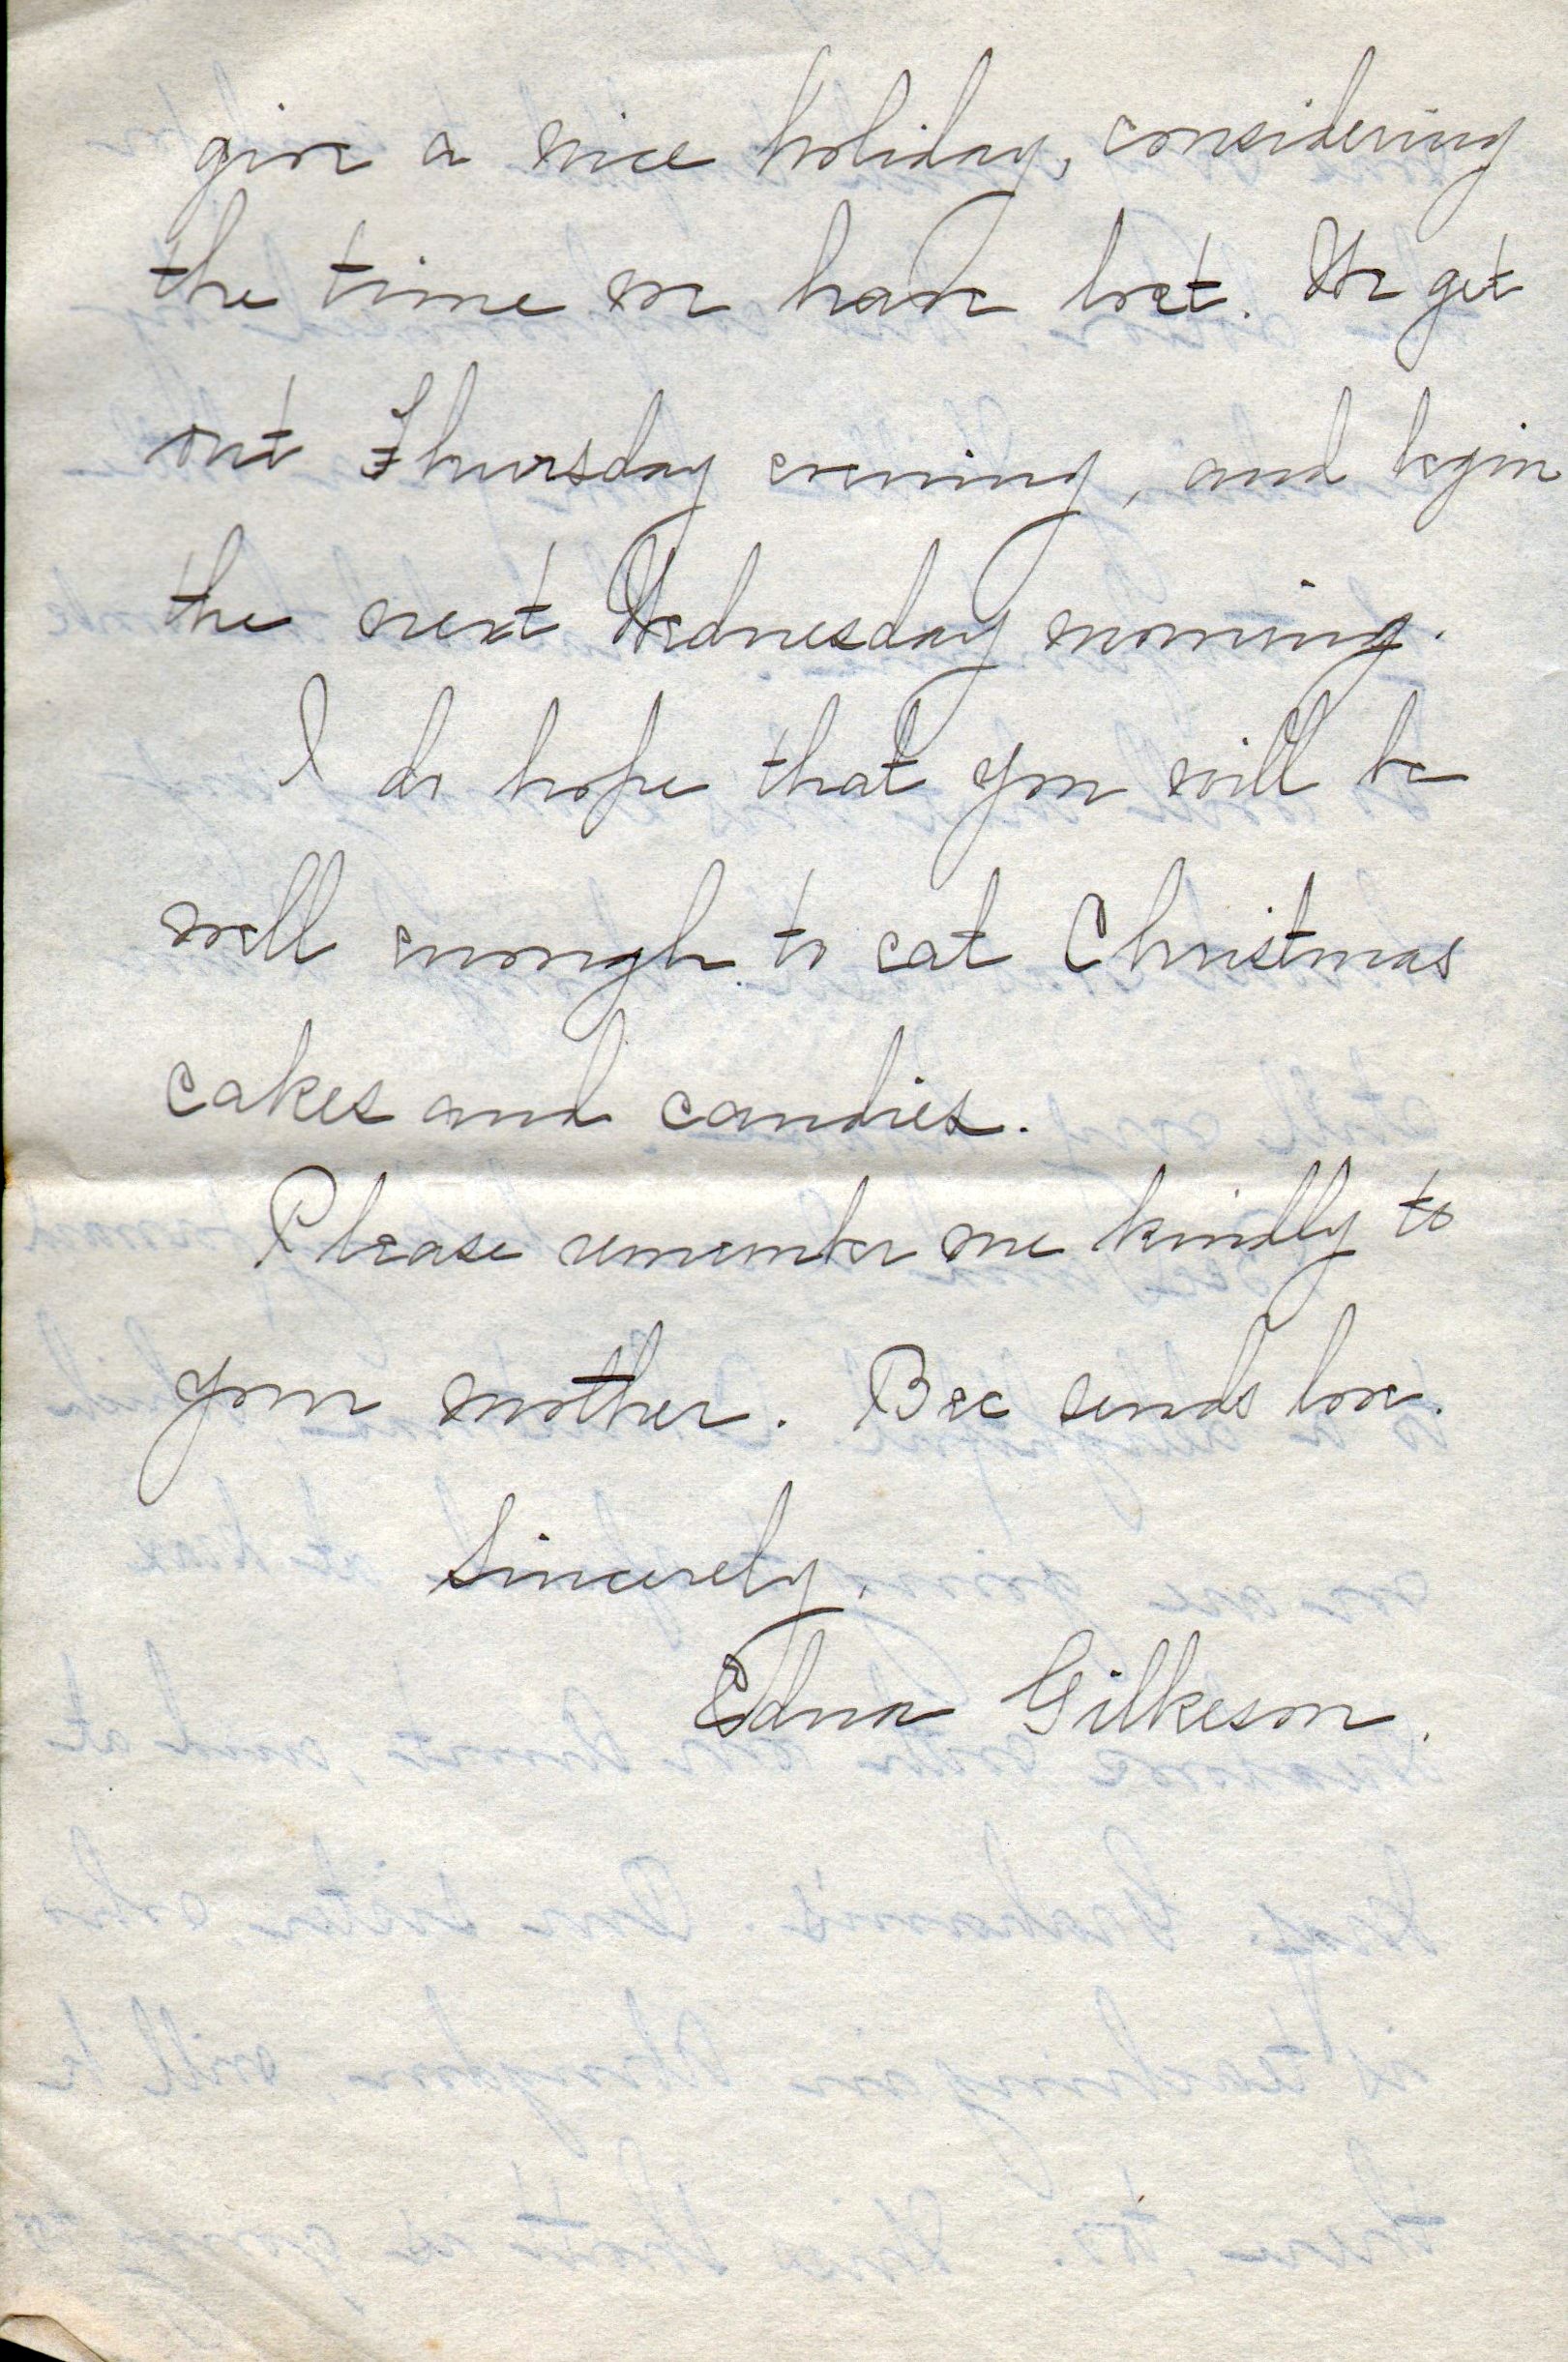 give a nice holiday, considering
the time we have lost. We get
out Thursday evening, and begin
the next Wednesday morning.
I do hope that you will be
well enough to eat Christmas
cakes and candies.
Please remember me kindly to
your mother. Bec sends love.
Sincerely,
Edna Gilkeson.